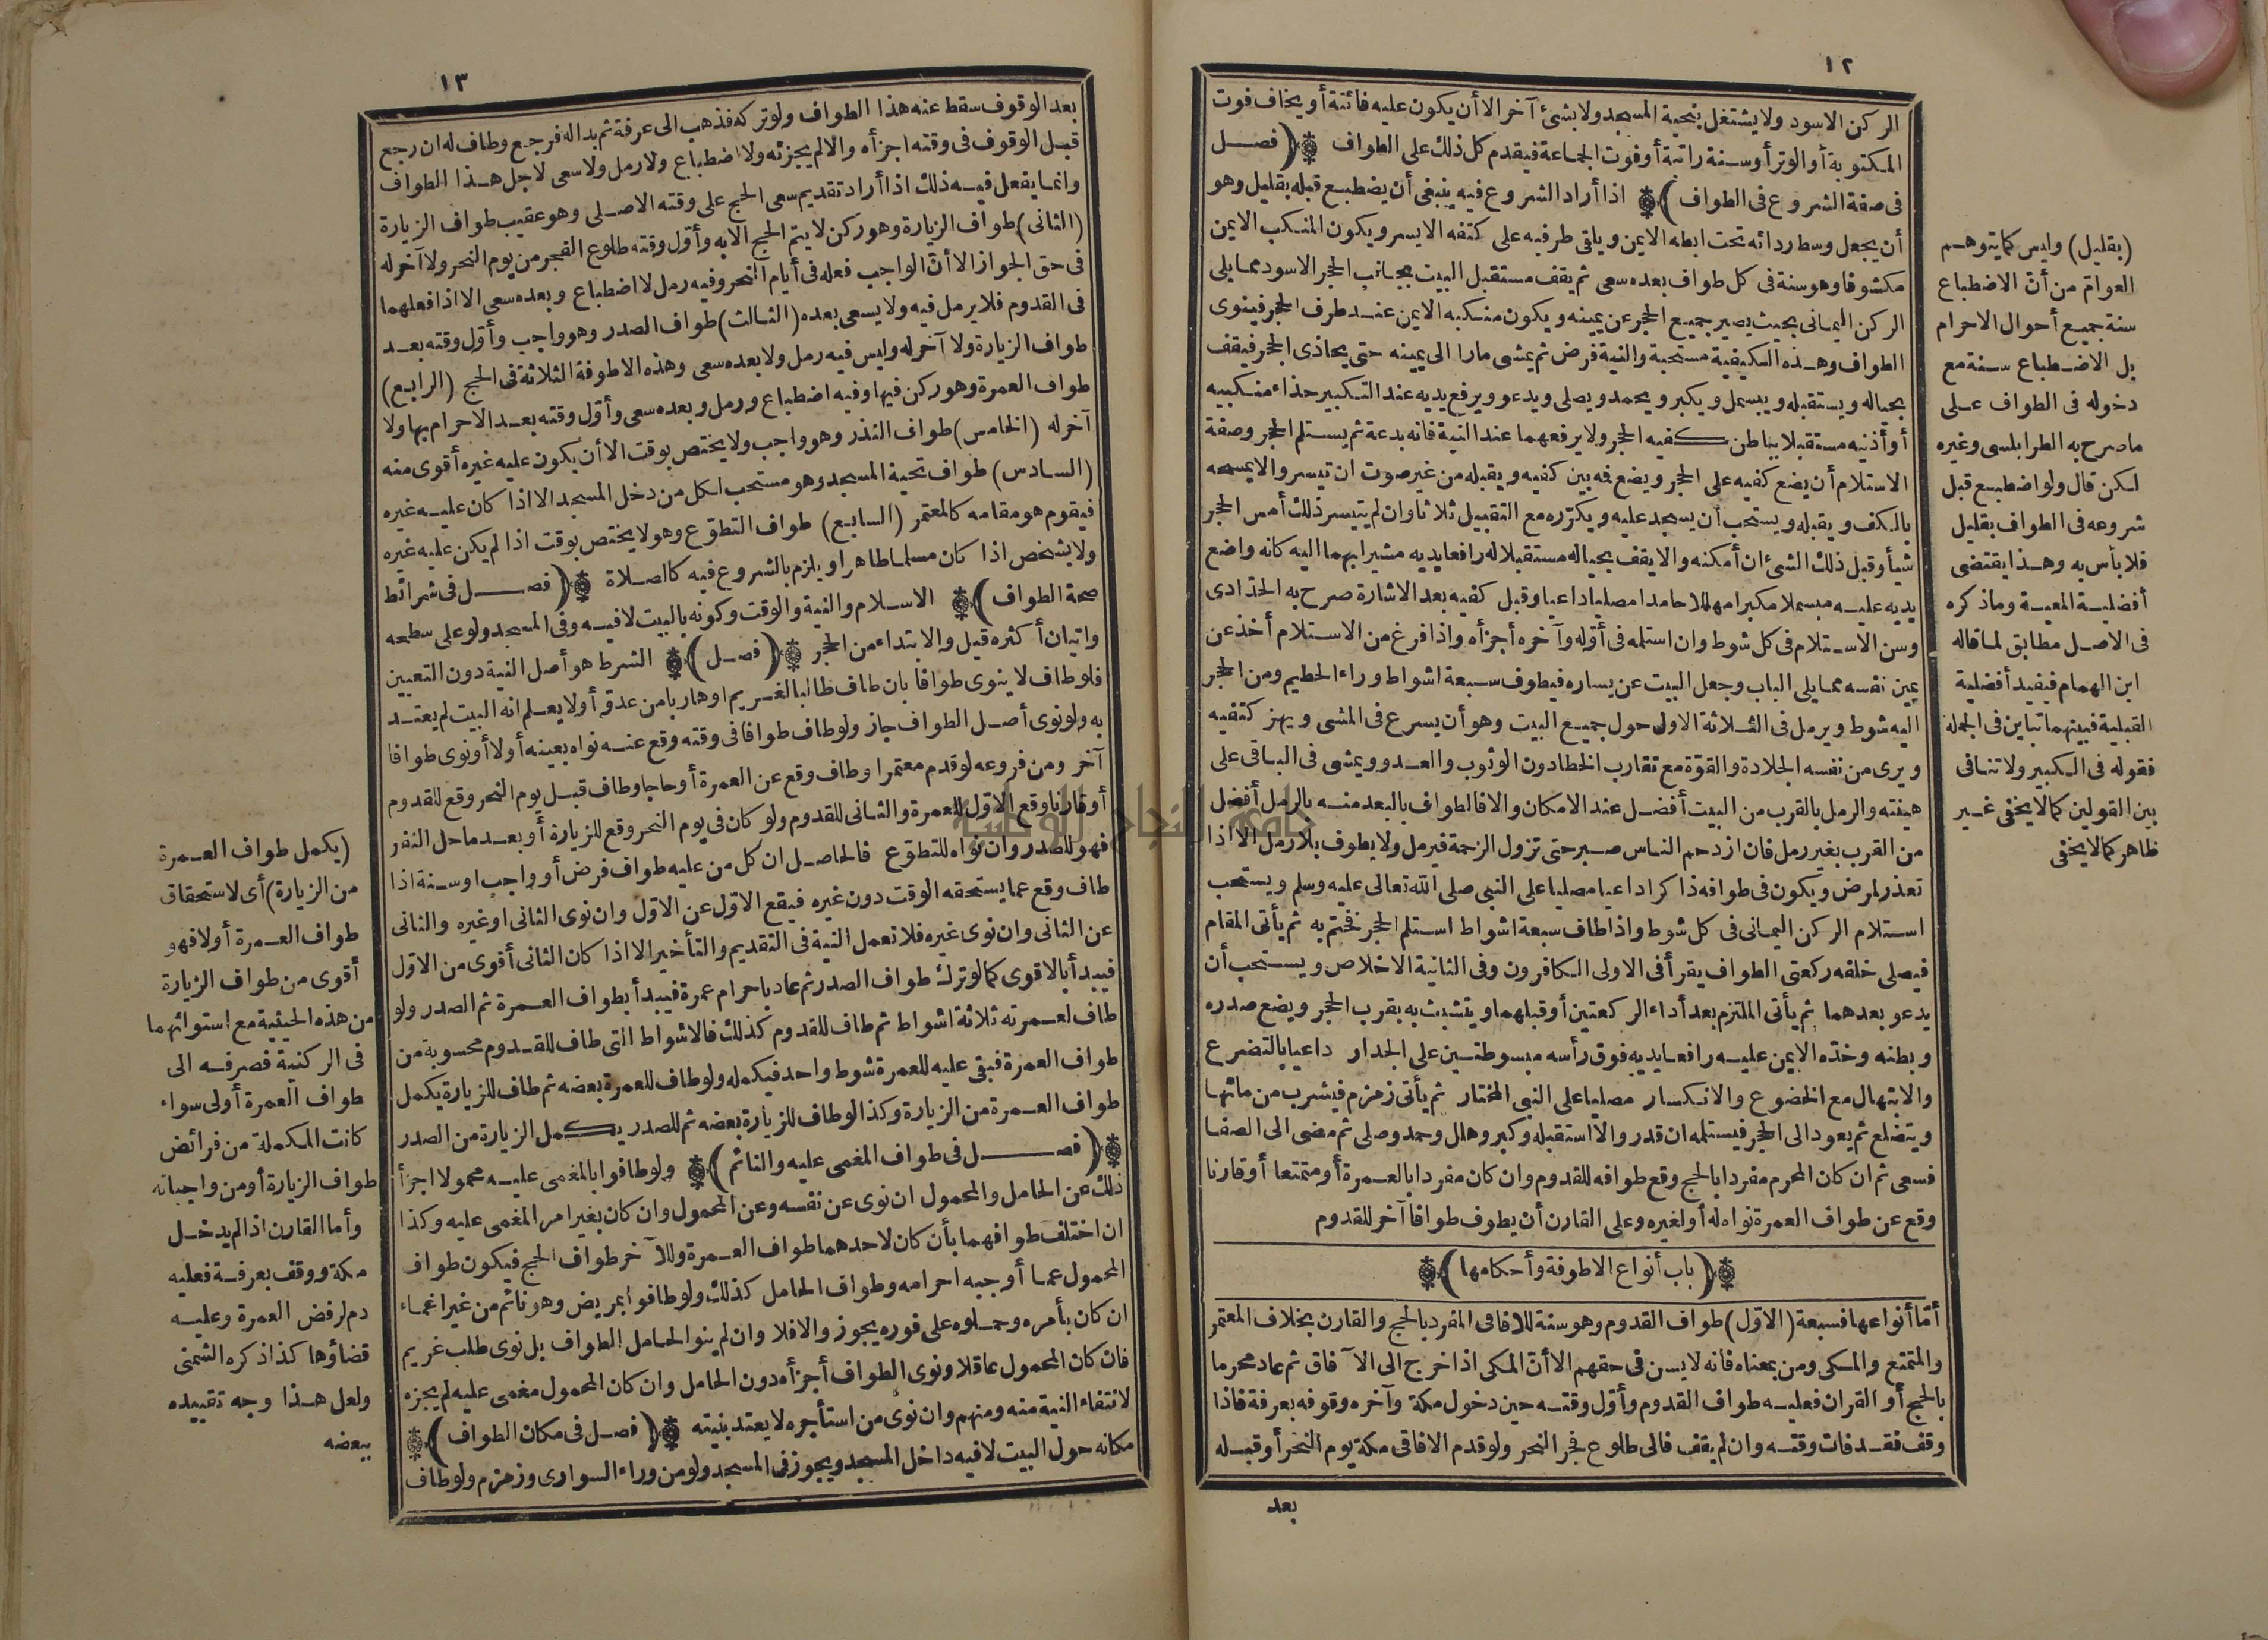 ١٢
الركن الاسود ولا يشتغل بتحية المسجد ولا بشئ آخر الا أن يكون عليه فائتة أو يخاف فوت
المكتوبة أو الوتر أو سنة راتبة أو فوت الجماعة فيقدم كل ذلك على الطواف ﴿فصل
فى صفة الشروع فى الطواف﴾ اذا أراد الشروع فيه ينبغى أن يضطبع قبله بقليل وهو
أن يجعل وسط ردائه تحت ابطه الايمن ويلقى طرفيه على كتفه الايسر ويكون المنكب الايمن
مكشوفا وهو سنة فى كل طواف بعده سعى ثم يقف مستقبل البيت بجانب الحجر الاسود مما يلى
الركن اليمانى بحيث يصير جميع الحجر عن يمينه ويكون منكبه الايمن عند طرف الحجر فينوى
الطواف وهذه الكيفية مستحبة والنية فرض ثم يمشى مارا الى يمينه حتى يحاذى الحجر فيقف
بحياله ويستقبله ويبسمل ويكبر ويحمد ويصلى ويدعو ويرفع يديه عند التكبير حذاء منكبيه
أو أذنيه مستقبلا بباطن كفيه الحجر ولا يرفعهما عند النية فانه بدعة ثم يستلم الحجر وصفة
الاستلام أن يضع كفيه على الحجر ويضع فه بين كفيه ويقبله من غير صوت ان تيسر والا يمسحه
بالكف ويقبله ويستحب أن يسجد عليه ويكرّره مع التقبيل ثلاثا وان لم يتيسر ذلك أمس الحجر
شيأ وقبل ذلك الشئ ان أمكنه والا يقف بحياله مستقبلا له رافعا يديه مشيرا بهما اليه كانه واضع
يديه عليه مبسملا مكبرا مهللا حامدا مصليا داعيا وقبل كفيه بعد الاشارة صرح به الحدادى
وسن الاستلام فى كل شوط وان استلمه فى أوله وآخره أجزأه واذا فرغ من الاستلام أخذ عن
يمين نفسه مما يلى الباب وجعل البيت عن يساره فيطوف سبعة اشواط وراء الحطيم ومن الحجر
اليه شوط ويرمل فى الثلاثة الاول حول جميع البيت وهو أن يسرع فى المشى ويهز كتفيه
ويرى من نفسه الجلادة والقوّة مع تقارب الخطا دون الوثوب والعدو ويمشى فى الباقى على
هينته والرمل بالقرب من البيت أفضل عند الامكان والا فالطواف بالبعد منه بالرمل أفضل
من القرب بغير رمل فان ازدحم الناس صبر حتى تزول الزحمة فيرمل ولا يطوف بلا رمل الا اذا
تعذر لمرض ويكون فى طوافه ذاكرا داعيا مصليا على النبى صلى الله تعالى عليه وسلم ويستحب
استلام الركن اليمانى فى كل شوط واذا طاف سبعة اشواط استلم الحجر فختم به ثم يأتى المقام
فيصلى خلفه ركعتى الطواف يقرأ فى الاولى الكافرون وفى الثانية الاخلاص ويستحب أن
يدعو بعدهما ثم يأتى الملتزم بعد أداء الركعتين أو قبلهما ويتشبث به بقرب الحجر ويضع صدره
وبطنه وخدّه الايمن عليه رافعا يديه فوق رأسه مبسوطتين على الجدار داعيا بالتضرع
والابتهال مع الخضوع والانكسار مصليا على النبى المختار ثم يأتى زمزم فيشرب من مائها
ويتضلع ثم يعود الى الحجر فيستلمه ان قدر والا استقبله وكبر وهلل وحمد وصلى ثم مضى الى الصفا
فسعى ثم ان كان المحرم مفردا بالحج وقع طوافه للقدوم وان كان مفردا بالعمرة أو متمتعا أو قارنا
وقع عن طواف العمرة نواه له أو لغيره وعلى القارن أن يطوف طوافا آخر للقدوم
﴿باب أنواع الاطوفة وأحكامها﴾
أمّا أنواعها فسبعة (الاوّل) طواف القدوم وهو سنة للآفاقى المفرد بالحج والقارن بخلاف المعتمر
والمتمتع والمكى ومن بمعناه فانه لا يسن فى حقهم الا أنّ المكى اذا خرج الى الآفاق ثم عاد محرما
بالحج أو القران فعليه طواف القدوم وأوّل وقته حين دخول مكة وآخره وقوفه بعرفة فاذا
وقف فقد فات وقته وان لم يقف فالى طلوع فجر النحر ولو قدم الآفاقى مكة يوم النحر أو قبله
بعد
(بقليل) وليس كما يتوهم
العوام من أنّ الاضطباع
سنة جميع أحوال الاحرام
بل الاضطباع سنة مع
دخوله فى الطواف على
ما صرح به الطرابلسى وغيره
لكن قال ولو اضطبع قبل
شروعه فى الطواف بقليل
فلا بأس به وهذا يقتضى
أفضلية المعية وما ذكره
فى الاصل مطابق لما قاله
ابن الهمام فيفيد أفضلية
القبلية فبينهما تباين فى الجملة
فقوله فى الكبير ولا تنافى
بين القولين كما لا يخفى غير
ظاهر كما لا يخفى
١٣
بعد الوقوف سقط عنه هذا الطواف ولو تركه فذهب الى عرفة ثم بدا له فرجع وطاف له ان رجع
قبل الوقوف فى وقته اجزأه والا لم يجزئه ولا اضطباع ولا رمل ولا سعى لاجل هذا الطواف
وانما يفعل فيه ذلك اذا أراد تقديم سعى الحج على وقته الاصلى وهو عقيب طواف الزيارة
(الثانى) طواف الزيارة وهو ركن لا يتم الحج الا به وأوّل وقته طلوع الفجر من يوم النحر ولا آخر له
فى حق الجواز الا أنّ الواجب فعله فى أيام النحر وفيه رمل لا اضطباع وبعده سعى الا اذا فعلهما
فى القدوم فلا يرمل فيه ولا يسعى بعده (الثالث) طواف الصدر وهو واجب وأوّل وقته بعد
طواف الزيارة ولا آخر له وليس فيه رمل ولا بعده سعى وهذه الاطوفة الثلاثة فى الحج (الرابع)
طواف العمرة وهو ركن فيها وفيه اضطباع ورمل وبعده سعى وأوّل وقته بعد الاحرام بها ولا
آخر له (الخامس) طواف النذر وهو واجب ولا يختص بوقت الا أن يكون عليه غيره أقوى منه
(السادس) طواف تحية المسجد وهو مستحب لكل من دخل المسجد الا اذا كان عليه غيره
فيقوم هو مقامه كالمعتمر (السابع) طواف التطوّع وهو لا يختص بوقت اذا لم يكن عليه غيره
ولا بشخص اذا كان مسلما طاهرا ويلزم بالشروع فيه كالصلاة ﴿فصل فى شرائط
صحة الطواف﴾ الاسلام والنية والوقت وكونه بالبيت لا فيه وفى المسجد ولو على سطحه
واتيان أكثره قيل والابتداء من الحجر ﴿فصل﴾ الشرط هو أصل النية دون التعيين
فلو طاف لا ينوى طوافا بان طاف طالبا لغريم او هاربا من عدوّ أو لا يعلم انه البيت لم يعتد
به ولو نوى أصل الطواف جاز ولو طاف طوافا فى وقته وقع عنه نواه بعينه أو لا أو نوى طوافا
آخر ومن فروعه لو قدم معتمرا وطاف وقع عن العمرة أو حاجا وطاف قبل يوم النحر وقع للقدوم
أو قارنا وقع الاوّل للعمرة والثانى للقدوم ولو كان فى يوم النحر وقع للزيارة أو بعد ما حل النفر
فهو للصدر وان نواه للتطوّع فالحاصل ان كل من عليه طواف فرض أو واجب او سنة اذا
طاف وقع عما يستحقه الوقت دون غيره فيقع الاوّل عن الاوّل وان نوى الثانى او غيره والثانى
عن الثانى وان نوى غيره فلا تعمل النية فى التقديم والتأخير الا اذا كان الثانى أقوى من الاوّل
فيبدأ بالاقوى كما لو ترك طواف الصدر ثم عاد باحرام عمرة فيبدأ بطواف العمرة ثم الصدر ولو
طاف لعمرته ثلاثة اشواط ثم طاف للقدوم كذلك فالاشواط التى طاف للقدوم محسوبة من
طواف العمرة فبقى عليه للعمرة شوط واحد فيكمله ولو طاف للعمرة بعضه ثم طاف للزيارة يكمل
طواف العمرة من الزيارة وكذا لو طاف للزيارة بعضه ثم للصدر يكمل الزيارة من الصدر
﴿فصل فى طواف المغمى عليه والنائم﴾ ولو طافوا بالمغمى عليه محمولا اجزأ
ذلك عن الحامل والمحمول ان نوى عن نفسه وعن المحمول وان كان بغير امر المغمى عليه وكذا
ان اختلف طوافهما بأن كان لاحدهما طواف العمرة وللآخر طواف الحج فيكون طواف
المحمول عما أوجبه احرامه وطواف الحامل كذلك ولو طافوا بمريض وهو نائم من غير اغماء
ان كان بأمره وحملوه على فوره يجوز والا فلا وان لم ينو الحامل الطواف بل نوى طلب غريم
فان كان المحمول عاقلا ونوى الطواف أجزأه دون الحامل وان كان المحمول مغمى عليه لم يجزه
لانتفاء النية منه ومنهم وان نوى من استأجره لا يعتد بنيته ﴿فصل فى مكان الطواف﴾
مكانه حول البيت لا فيه داخل المسجد ويجوز فى المسجد ولو من وراء السوارى وزمزم ولو طاف
(يكمل طواف العمرة
من الزيارة) أى لاستحقاق
طواف العمرة أولا فهو
أقوى من طواف الزيارة
من هذه الحيثية مع استوائهما
فى الركنية فصرفه الى
طواف العمرة أولى سواء
كانت المكملة من فرائض
طواف الزيارة أو من واجباته
وأما القارن اذا لم يدخل
مكة ووقف بعرفة فعليه
دم لرفض العمرة وعليه
قضاؤها كذا ذكره الشمنى
ولعل هذا وجه تقييده
ببعضه
جامعة النجاح الوطنية